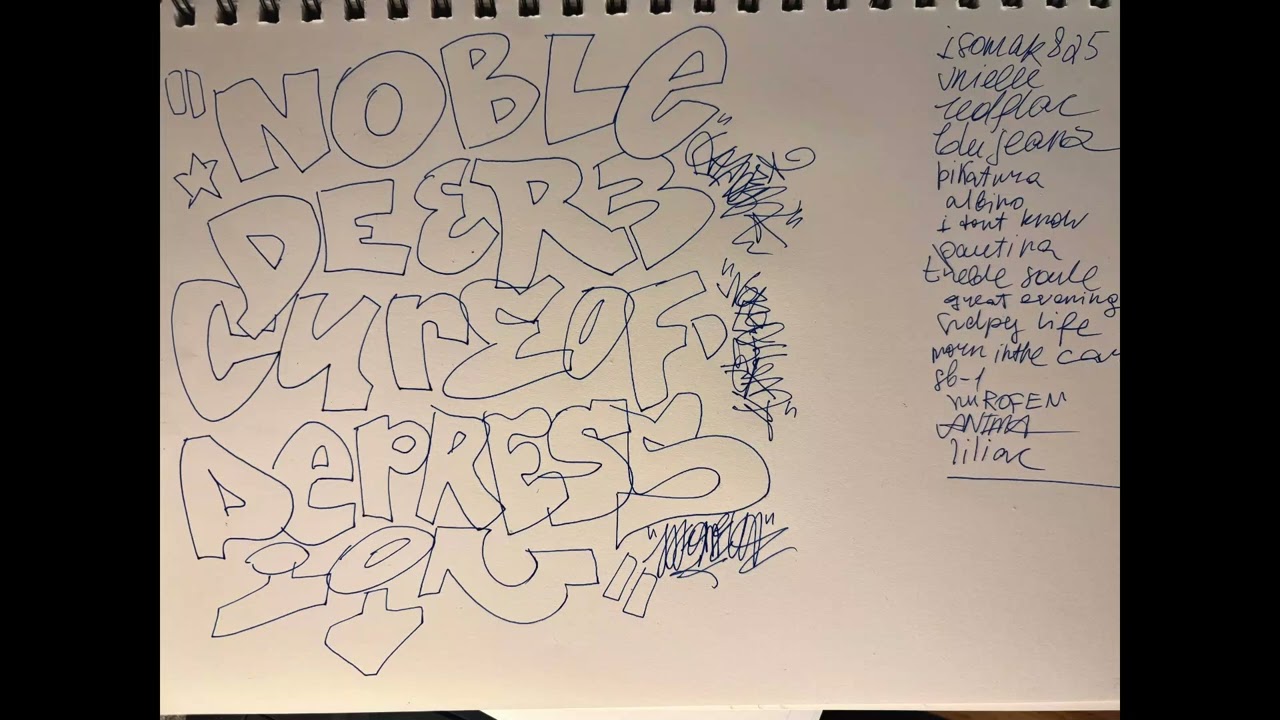 "NOBLE
DEER3
CyrEOF
DePRESS
ION"
isomak825
vnielle
redflac
pikatura
albino
i dont know
pautina
treble soule
great evening
life
morn inthe car
sb-1
nuROFEN
ANIMA
liliac